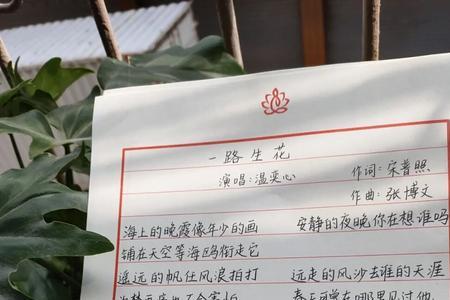 一路生花
演唱:温奕心
作词:宋普照
作曲:张博文
海上的晚霞像年少的画
铺在天空等海鸥衔走它
遥远的帆任风浪拍打
安静的夜晚你在想谁吗
远走的风沙去谁的天涯